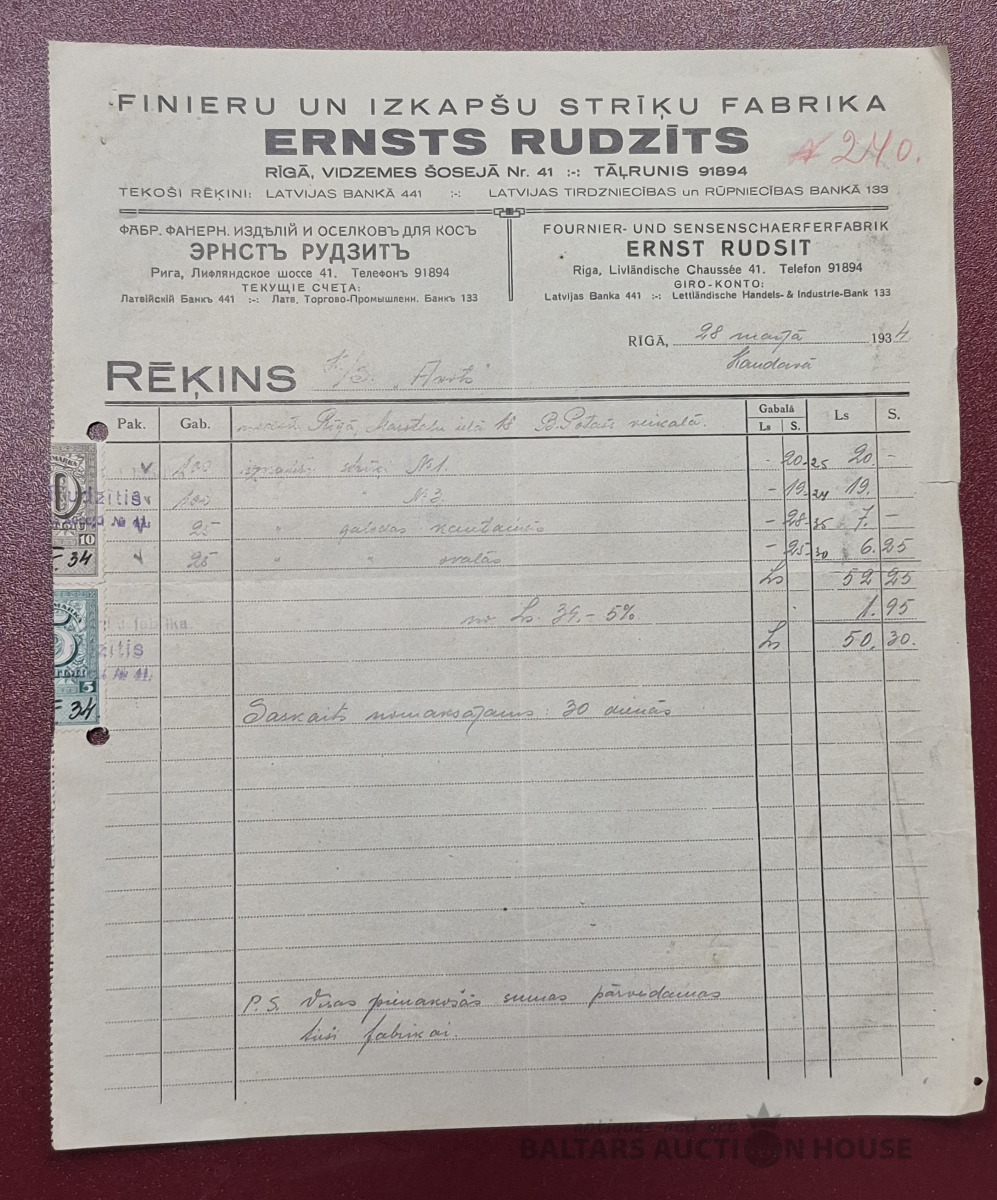 FINIERU UN IZKAPŠU STRĪĶU FABRIKA
ERNSTS RUDZĪTS
№ 240.
RĪGĀ, VIDZEMES ŠOSEJĀ Nr. 41 :-: TĀĻRUNIS 91894
TEKOŠI RĒĶINI: LATVIJAS BANKĀ 441 :-: LATVIJAS TIRDZNIECĪBAS un RŪPNIECĪBAS BANKĀ 133
ФАБР. ФАНЕРН. ИЗДѢЛІЙ И ОСЕЛКОВЪ ДЛЯ КОСЪ
ЭРНСТЪ РУДЗИТЪ
Рига, Лифляндское шоссе 41. Телефонъ 91894
ТЕКУЩІЕ СЧЕТА:
Латвійскій Банкъ 441 :-: Латв. Торгово-Промышленн. Банкъ 133
FOURNIER- UND SENSENSCHAERFERFABRIK
ERNST RUDSIT
Riga, Livländische Chaussée 41. Telefon 91894
GIRO-KONTO:
Latvijas Banka 441 :-: Lettländische Handels- & Industrie-Bank 133
RĪGĀ, 28 martā 1934
Kandavā
RĒĶINS "Avots"
Pak. Gab. Rīgā, ielā B. veikalā. Gabalā Ls S. Ls S.
v 100 izkapšu strīķi №1. - 20 25 20. -
v 100 " №3 - 19 24 19.
v 25 " galodas kantainās - 28 35 7. -
v 25 " " ovalās - 25 30 6. 25
Ls 52 25
no Ls. 39.- 5% 1. 95
Ls 50. 30.
Rudzitis
№ 41.
10
34
fabrika
zitis
№ 41.
5
34
nomaksājams: 30 dienās
P.S. Visas pienākošās sumas pārvedamas
tieši fabrikai.
antiques and art
BALTARS AUCTION HOUSE